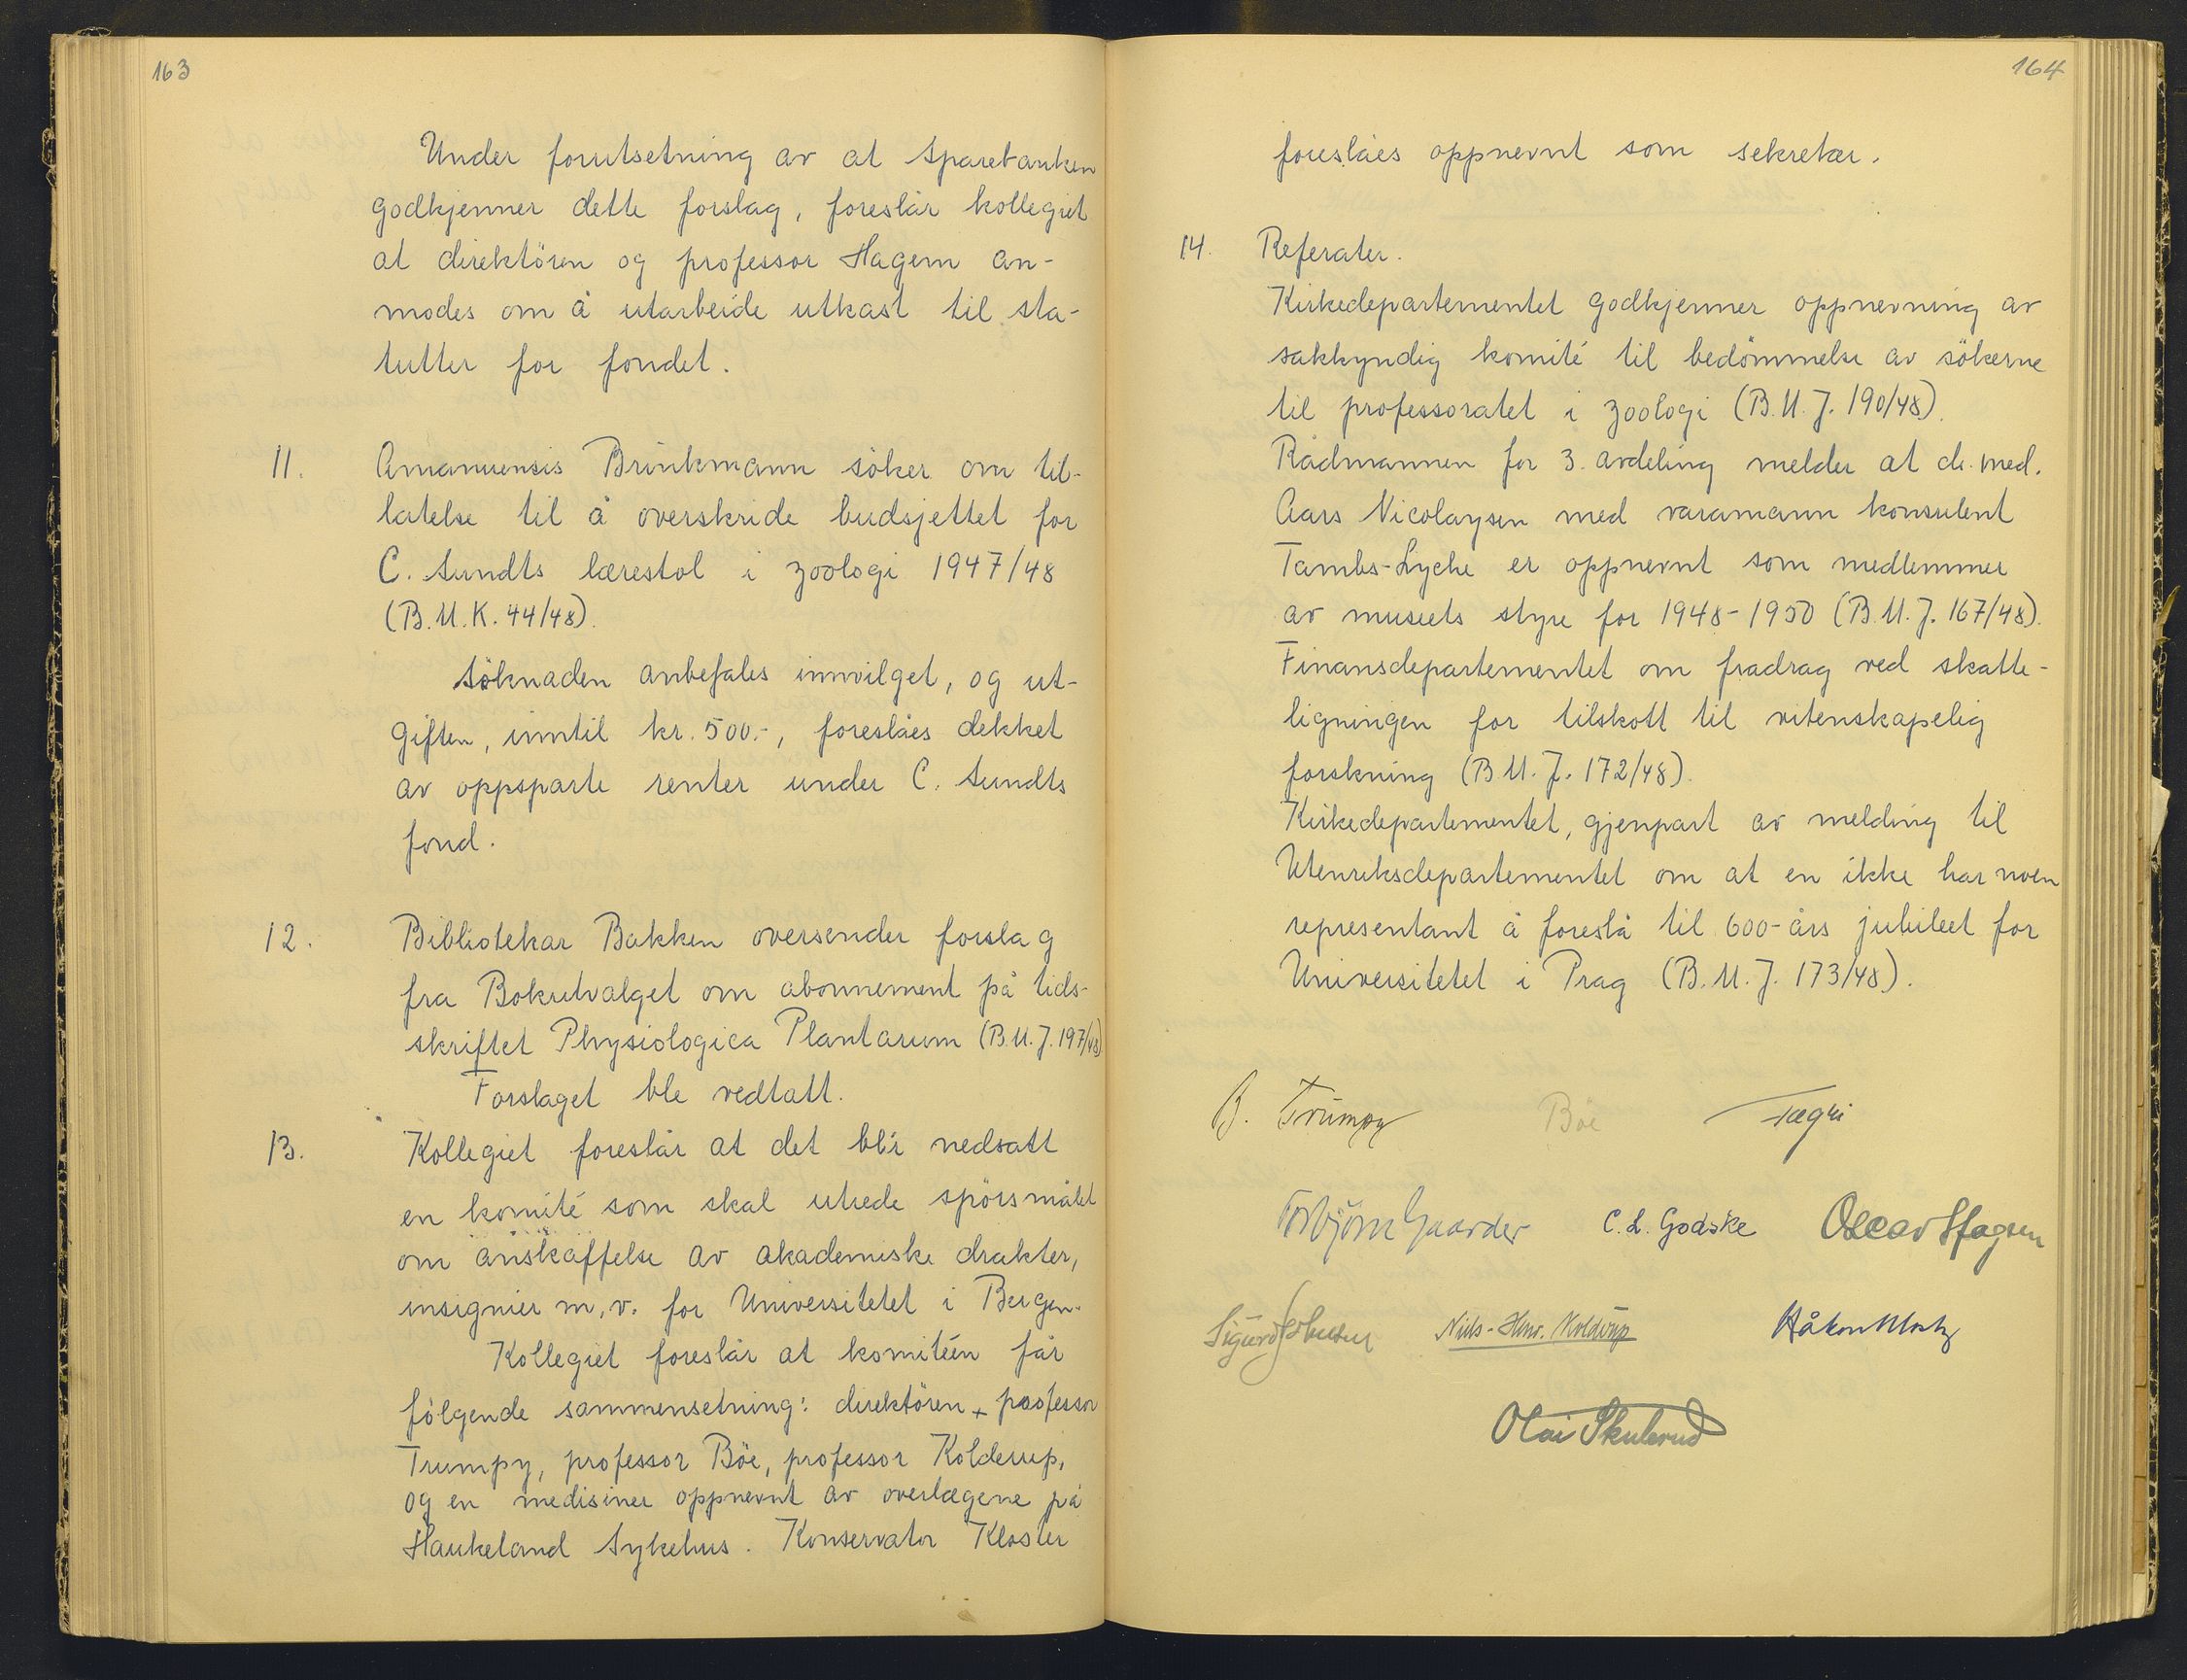 163
Under forutsetning av at Sparebanken
godkjenner dette forslag, foreslår kollegiet
at direktören og professor Hagem an-
modes om å utarbeide utkast til sta-
tutter for fondet.
11. Amanuensis Brinkmann söker om til-
latelse til å overskride budsjettet for
C. Sundts lærestol i zoologi 1947/48
(B.U.K. 44/48).
Söknaden anbefales innvilget, og ut-
giften, inntil kr. 500.-, foreslåes dekket
av oppsparte renter under C. Sundts
fond.
12. Bibliotekar Bakken oversender forslag
fra Bokutvalget om abonnement på tids-
skriftet Physiologica Plantarum (B.U.J. 197/48)
Forslaget ble vedtatt.
13. Kollegiet foreslår at det blir nedsatt
en komité som skal utrede spörsmålet
om anskaffelse av akademiske drakter,
insignier m.v. for Universitetet i Bergen.
Kollegiet foreslår at komitéen får
fölgende sammensetning: direktören + professor
Trumpy, professor Böe, professor Kolderup,
og en medisiner oppnevnt av overlægene på
Haukeland Sykehus. Konservator Kloster
164
foreslåes oppnevnt som sekretær.
14. Referater.
Kirkedepartementet godkjenner oppnevning av
sakkyndig komité til bedömmelse av sökerne
til professoratet i zoologi (B.U.J. 190/48).
Rådmannen for 3. avdeling melder at dr. med.
Aars Nicolaysen med varamann konsulent
Tambs-Lyche er oppnevnt som medlemmer
av museets styre for 1948-1950 (B.U.J. 167/48).
Finansdepartementet om fradrag ved skatte-
ligningen for tilskott til vitenskapelig
forskning (B.U.J. 172/48).
Kirkedepartementet, gjenpart av melding til
Utenriksdepartementet om at en ikke har noen
representant å foreslå til 600-års jubileet for
Universitetet i Prag (B.U.J. 173/48).
B. Trumpy Böe Fægri
Torbjörn Gaarder C. L. Godske Oscar Hagem
Sigurd Johnsen Niels-Henr. Kolderup Håkon Mosby
Olai Skulerud